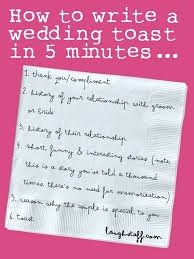 How to write a
wedding toast
in 5 minutes...
1. thank you/compliment
2. history of your relationship with groom
or bride
3. history of their relationship
4. short, funny & interesting stories (note:
this is a story you've told a thousand
times, there's no need for memorization)
5. reason why the couple is special to you
6. toast
laughstaff.com